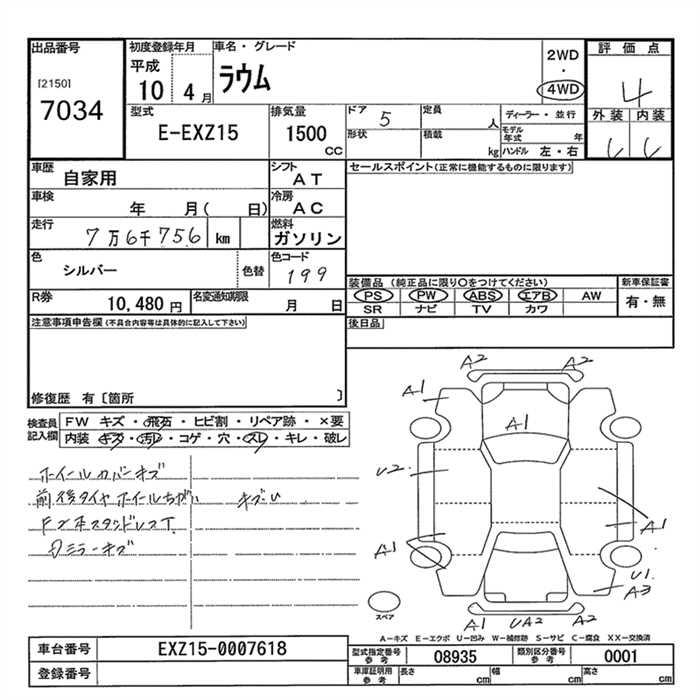 出品番号
[2150]
7034
初度登録年月
平成
10 4月
車名・グレード
ラウム
2WD
・
4WD
評価点
4
外装 内装
型式
E-EXZ15
排気量
1500
CC
ドア 5
形状
定員 人
積載 kg
ディーラー・並行
モデル年式 年
ハンドル 左・右
車歴
自家用
シフト
AT
車検
年 月( 日)
冷房
AC
走行
7万6千756 km
燃料
ガソリン
色
シルバー
色替
色コード
199
R券
10,480 円
名変通知期限
月 日
セールスポイント(正常に機能するものに限ります)
装備品 (純正品に限り○をつけてください)
PS PW ABS エアB AW
SR ナビ TV カワ
新車保証書
有・無
後日品
注意事項申告欄(不具合内容等は具体的に記入して下さい)
修復歴 有〔箇所 〕
検査員
記入欄
FW キズ・飛石・ヒビ割・リペア跡・×要
内装・キズ・汚レ・コゲ・穴・スレ・キレ・破レ
ホイールカバーキズ
前後タイヤホイールちがい キズU
ミラーキズ
A2 A2
A1
A1
U2
A1
A1
U1
A3
A1 UA2 A2
スペア
A-キズ E-エクボ U-凹み W-補修跡 S-サビ C-腐食 XX-交換済
車台番号
EXZ15-0007618
登録番号
型式指定番号
参考
08935
類別区分番号
参考
0001
車庫証明用
参考
長さ cm
幅 cm
高さ cm